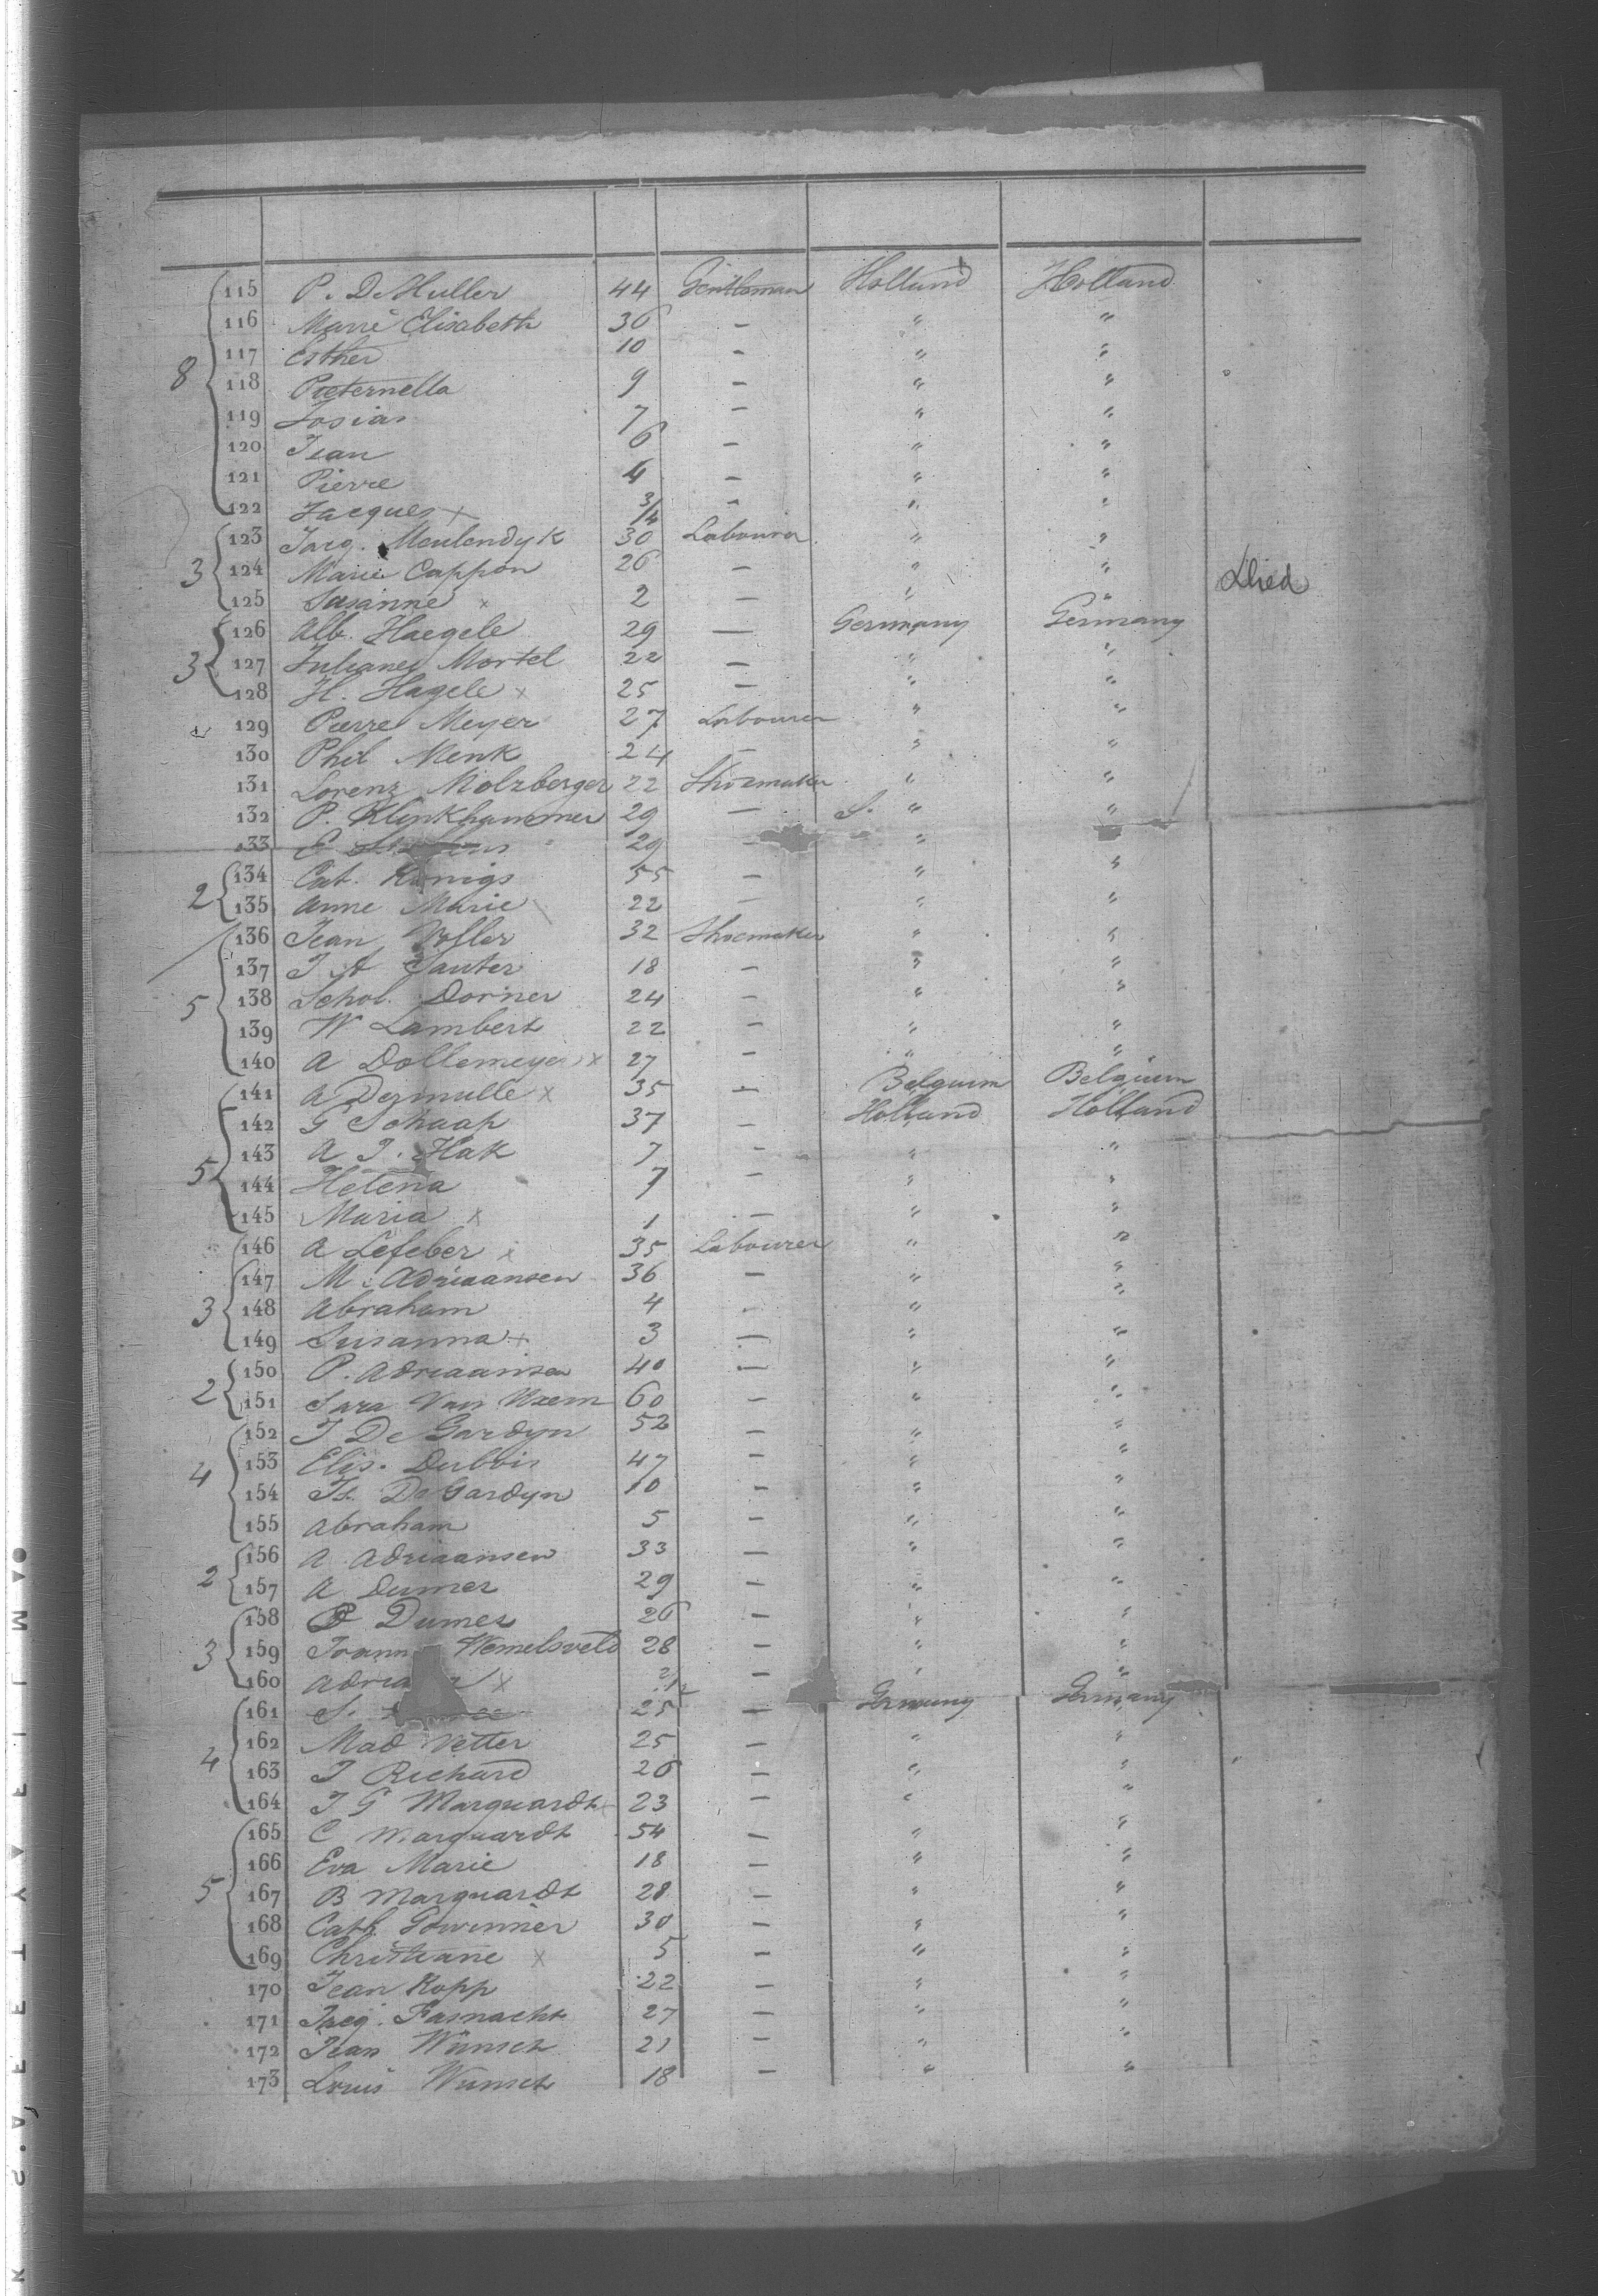 115 P. DeMuller 44 Gentleman Holland Holland
116 Marie Elisabeth 36 — " "
117 Esther 10 — " "
8 118 Pieternella 9 — " "
119 Josias 7 — " "
120 Jean 6 — " "
121 Pierre 4 — " "
122 Jacques x 3/4 — " "
123 Jacq. Meulendyk 30 Labourer " "
3 124 Marie Cappon 26 — " "
125 Susanne x 2 — " " Died
126 Alb. Haegele 29 — Germany Germany
3 127 Juliane Mortel 22 — " "
128 H. Hagele x 25 — " "
129 Pierre Meyer 27 Labourer " "
130 Phil Menk 24 — " "
131 Lorenz Molzberger 22 Shoemaker " "
132 P. Klinkhammer 29 — " "
133 E 29 — " "
134 Cat. Konigs 55 — " "
2 135 Anne Marie 22 — " "
136 Jean 32 Shoemaker " "
137 J A Sauter 18 — " "
5 138 Schol. Dorner 24 — " "
139 W Lambert 22 — " "
140 A Dollemeyer x 27 — " "
141 A Deymulle x 35 — Belguim Belguim
142 G Schaap 37 — Holland Holland
143 A J. Hak 7 — " "
5 144 Helena 7 — " "
145 Maria x 1 — " "
146 A Lefeber x 35 Labourer " "
147 M. Adriaansen 36 — " "
3 148 Abraham 4 — " "
149 Susanna x 3 — " "
150 P. Adriaansen 40 — " "
2 151 Sara Van Uxem 60 — " "
152 J De Gardyn 52 — " "
153 Elis. Dubbis 47 — " "
4 154 Is. DeGardyn 10 — " "
155 Abraham 5 — " "
156 A Adriaansen 33 — " "
2 157 A Dumes 29 — " "
158 P Dumes 26 — " "
3 159 Wemelsveld 28 — " "
160 x — " "
161 S. 25 — Germany Germany
162 Mad Vetter 25 — " "
4 163 J Richard 26 — " "
164 J G Marquardt x 23 — " "
165 C Marquardt 54 — " "
166 Eva Marie 18 — " "
5 167 B Marquardt 28 — " "
168 Cath Gowinner 30 — " "
169 Christiane x 5 — " "
170 Jean Kopp 22 — " "
171 Jacq. Fasnacht 27 — " "
172 Jean Wunsch 21 — " "
173 Louis Wunsch 18 — " "